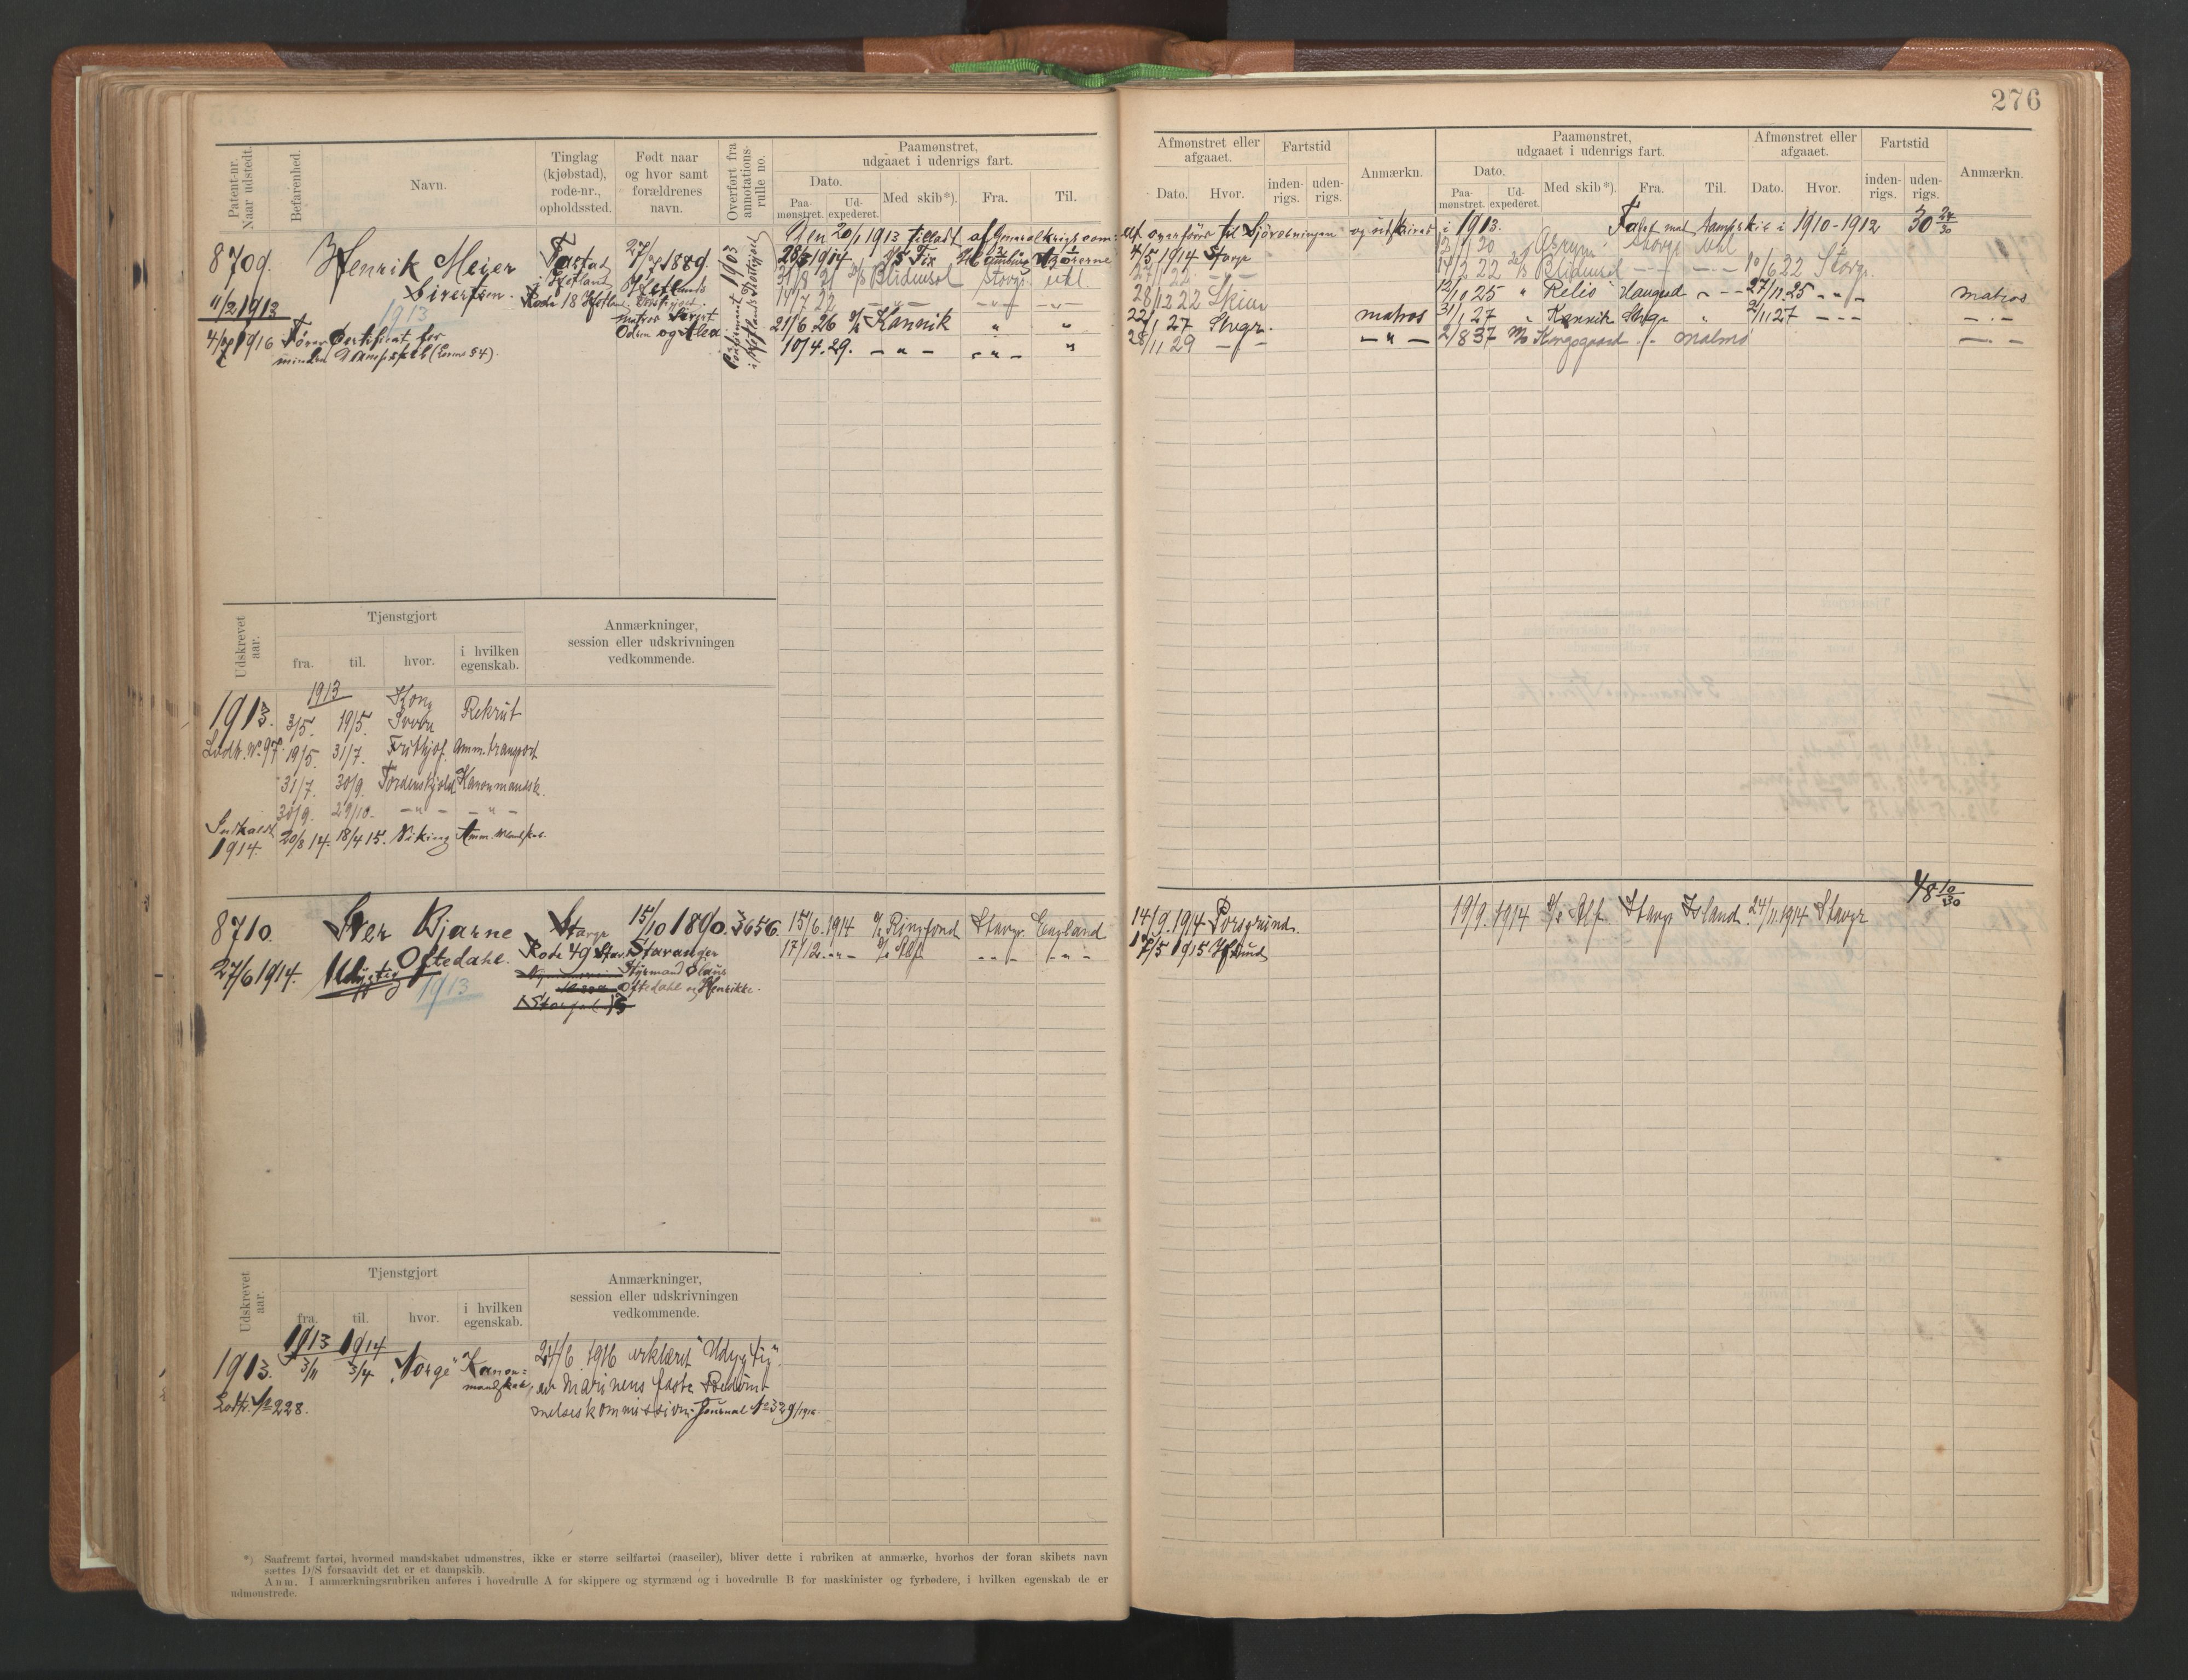 276
Patent-nr. Naar udstedt.
Befarenhed.
Navn.
Tinglag (kjøbstad), rode-nr., opholdssted.
Født naar og hvor samt forældrenes navn.
Overført fra annotations-rulle no.
Paamønstret, udgaaet i udenrigs fart.
Dato.
Paa-mønstret.
Ud-expederet.
Med skib*).
Fra.
Til.
Afmønstret eller afgaaet.
Dato.
Hvor.
Fartstid
inden-rigs.
uden-rigs.
Anmærkn.
Paamønstret, udgaaet i udenrigs fart.
Dato.
Paa-mønstret.
Ud-expederet.
Med skib*).
Fra.
Til.
Afmønstret eller afgaaet.
Dato.
Hvor.
Fartstid
inden-rigs.
uden-rigs.
Anmærkn.
8709.
Henrik Meier
Sivertsen.
1913
11/2 1913
1916 Fører Certifikat for
mindre Dampskib
i Hetland
Rode 18 Hetland
27/ 1889.
Hetlands
matros Sivert
Odin og Alea
1903
Den 20/1 1913 tilladt af Generalkrigscom:
overføres til Sjøvæbningen og udskrives i 1913.
Faret med Dampskib i 1910-1912
30 24/30
1914 Fix Hamburg Azorerne
4/5 1914 Stavgr
31/8 21 Blidensol Stavgr udl.
12/1 20 Stavgr Udl
14/7 22 – " – – " – – " –
28/12 22 Skien
14/2 22 Blidensol
10/6 22 Stavgr.
12/10 25 " Relis Haugesd
27/11 25 – " –
matros
21/6 26 Kannik " "
22/1 27 Stvgr.
matros
31/1 27 " Kannik Stvgr "
2/11 27 – – –
– " –
10/4. 29. – " – – " – "
28/11 29 – " –
– " –
2/8 37 M/S Kongsgaard malmø
– " –
Udskrevet aar.
Tjenstgjort
fra.
til.
hvor.
i hvilken egenskab.
Anmærkninger, session eller udskrivningen vedkommende.
1913.
Lodtr. No 97.
1913
3/5. 19/5. Rekrut
19/5. 31/7. Frithjof. Amm. transport
31/7. 30/9. Tordenskjold Kanonmandsk.
30/9. 29/10. – " – – " –
Indkaldt
1914.
20/8 14. 18/4 15. Viking Amm. Mandskab.
8710.
27/6 1914.
Iver Bjarne
Oftedahl.
Udygtig
1913
Stavgr
Rode 49 Stav.
15/10 1890.
Stavanger
Styrmand Olaus
Oftedahl og Henrikke.
3656.
15/6. 1914 Ringfond Stavgr. England
17/12 – " – Alf – " – – " –
14/9. 1914 Porsgrund.
17/5 1915
19/9. 1914 Alf Stavgr Island
24/11 1914 Stavgr
48 10/30
Udskrevet aar.
Tjenstgjort
fra.
til.
hvor.
i hvilken egenskab.
Anmærkninger, session eller udskrivningen vedkommende.
1913 1914
1913. 3/11 3/4 "Norge" Kanon=
mandskab
Lodtr. No 228.
24/6 1916 erklæret "Udygtig"
av Marinens faste Bedøm=
melseskommission. Journal No 329/1916.
*) Saafremt fartøi, hvormed mandskabet udmønstres, ikke er større seilfartøi (raaseiler), bliver dette i rubriken at anmærke, hvorhos der foran skibets navn
sættes D/S forsaavidt det er et dampskib.
Anm. I anmærkningsrubriken anføres i hovedrulle A for skippere og styrmænd og i hovedrulle B for maskinister og fyrbødere, i hvilken egenskab de er
udmønstrede.